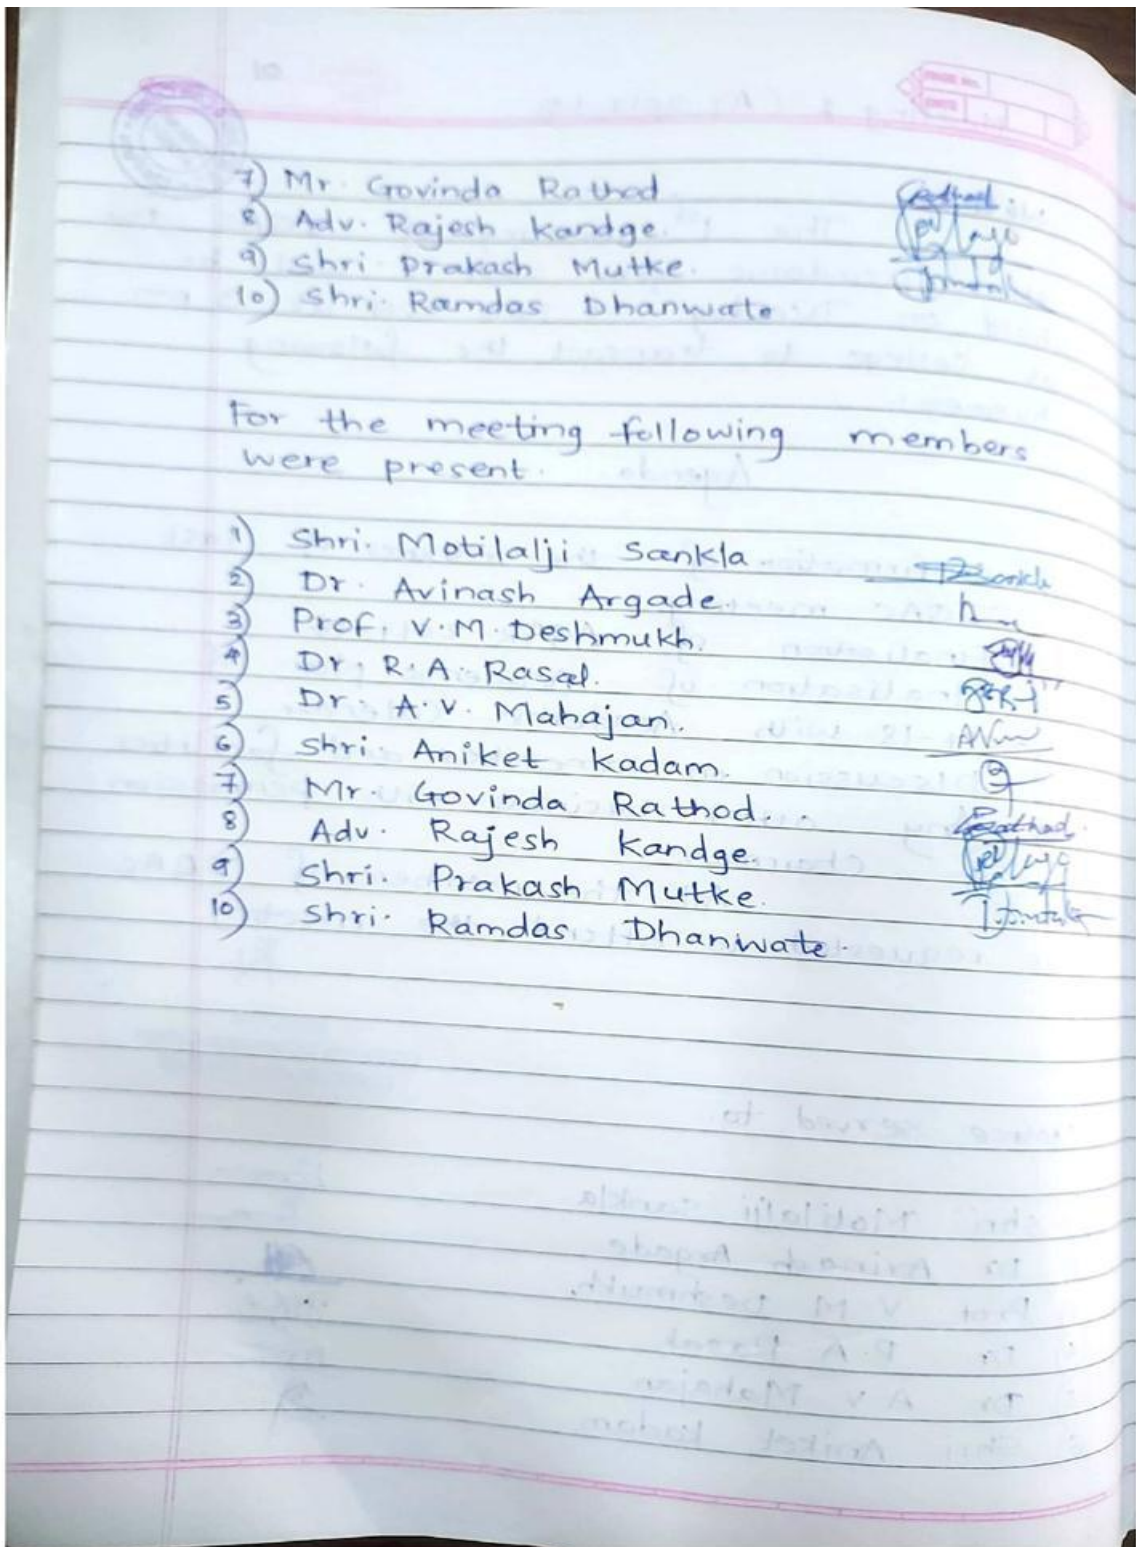 PAGE NO.
DATE
7) Mr. Govinda Rathod
8) Adv. Rajesh Kandge.
9) Shri Prakash Mutke.
10) Shri. Ramdas Dhanwate
For the meeting following members
were present.
1) Shri. Motilalji Sankla
2) Dr. Avinash Argade.
3) Prof. V.M. Deshmukh.
4) Dr. R.A. Rasal.
5) Dr. A.V. Mahajan.
6) Shri Aniket Kadam.
7) Mr. Govinda Rathod.
8) Adv. Rajesh Kandge.
9) Shri. Prakash Mutke.
10) Shri. Ramdas Dhanwate.